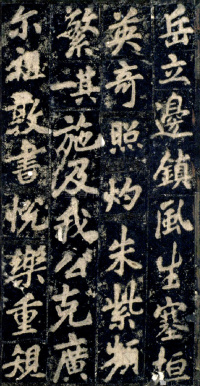 岳立邊鎮風生塞垣
英奇照灼朱紫頻
繁其施及我公克廣
尔祖敦書悅樂重規